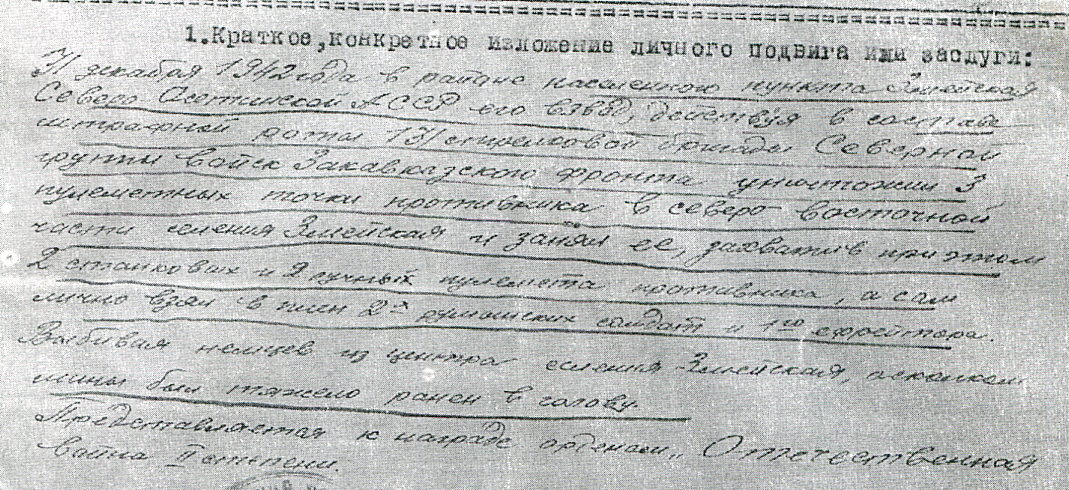 1.Краткое,конкретное изложение личного подвига или заслуги:
31 декабря 1942 года в районе населенного пункта Змейская
Северо Осетинской АССР его взвод, действуя в составе
штрафной роты 131 стрелковой бригады Северной
группы войск Закавказского фронта уничтожил 3
пулеметных точки противника в северо восточной
части селения Змейская и занял ее, захватив при этом
2 станковых и 2 ручных пулемета противника, а сам
лично взял в плен 2-х румынских солдат и 1го ефрейтора.
Выбивая немцев из центра селения Змейская, осколком
мины был тяжело ранен в голову.
Представляется к награде орденом „Отечественная
война II степени.